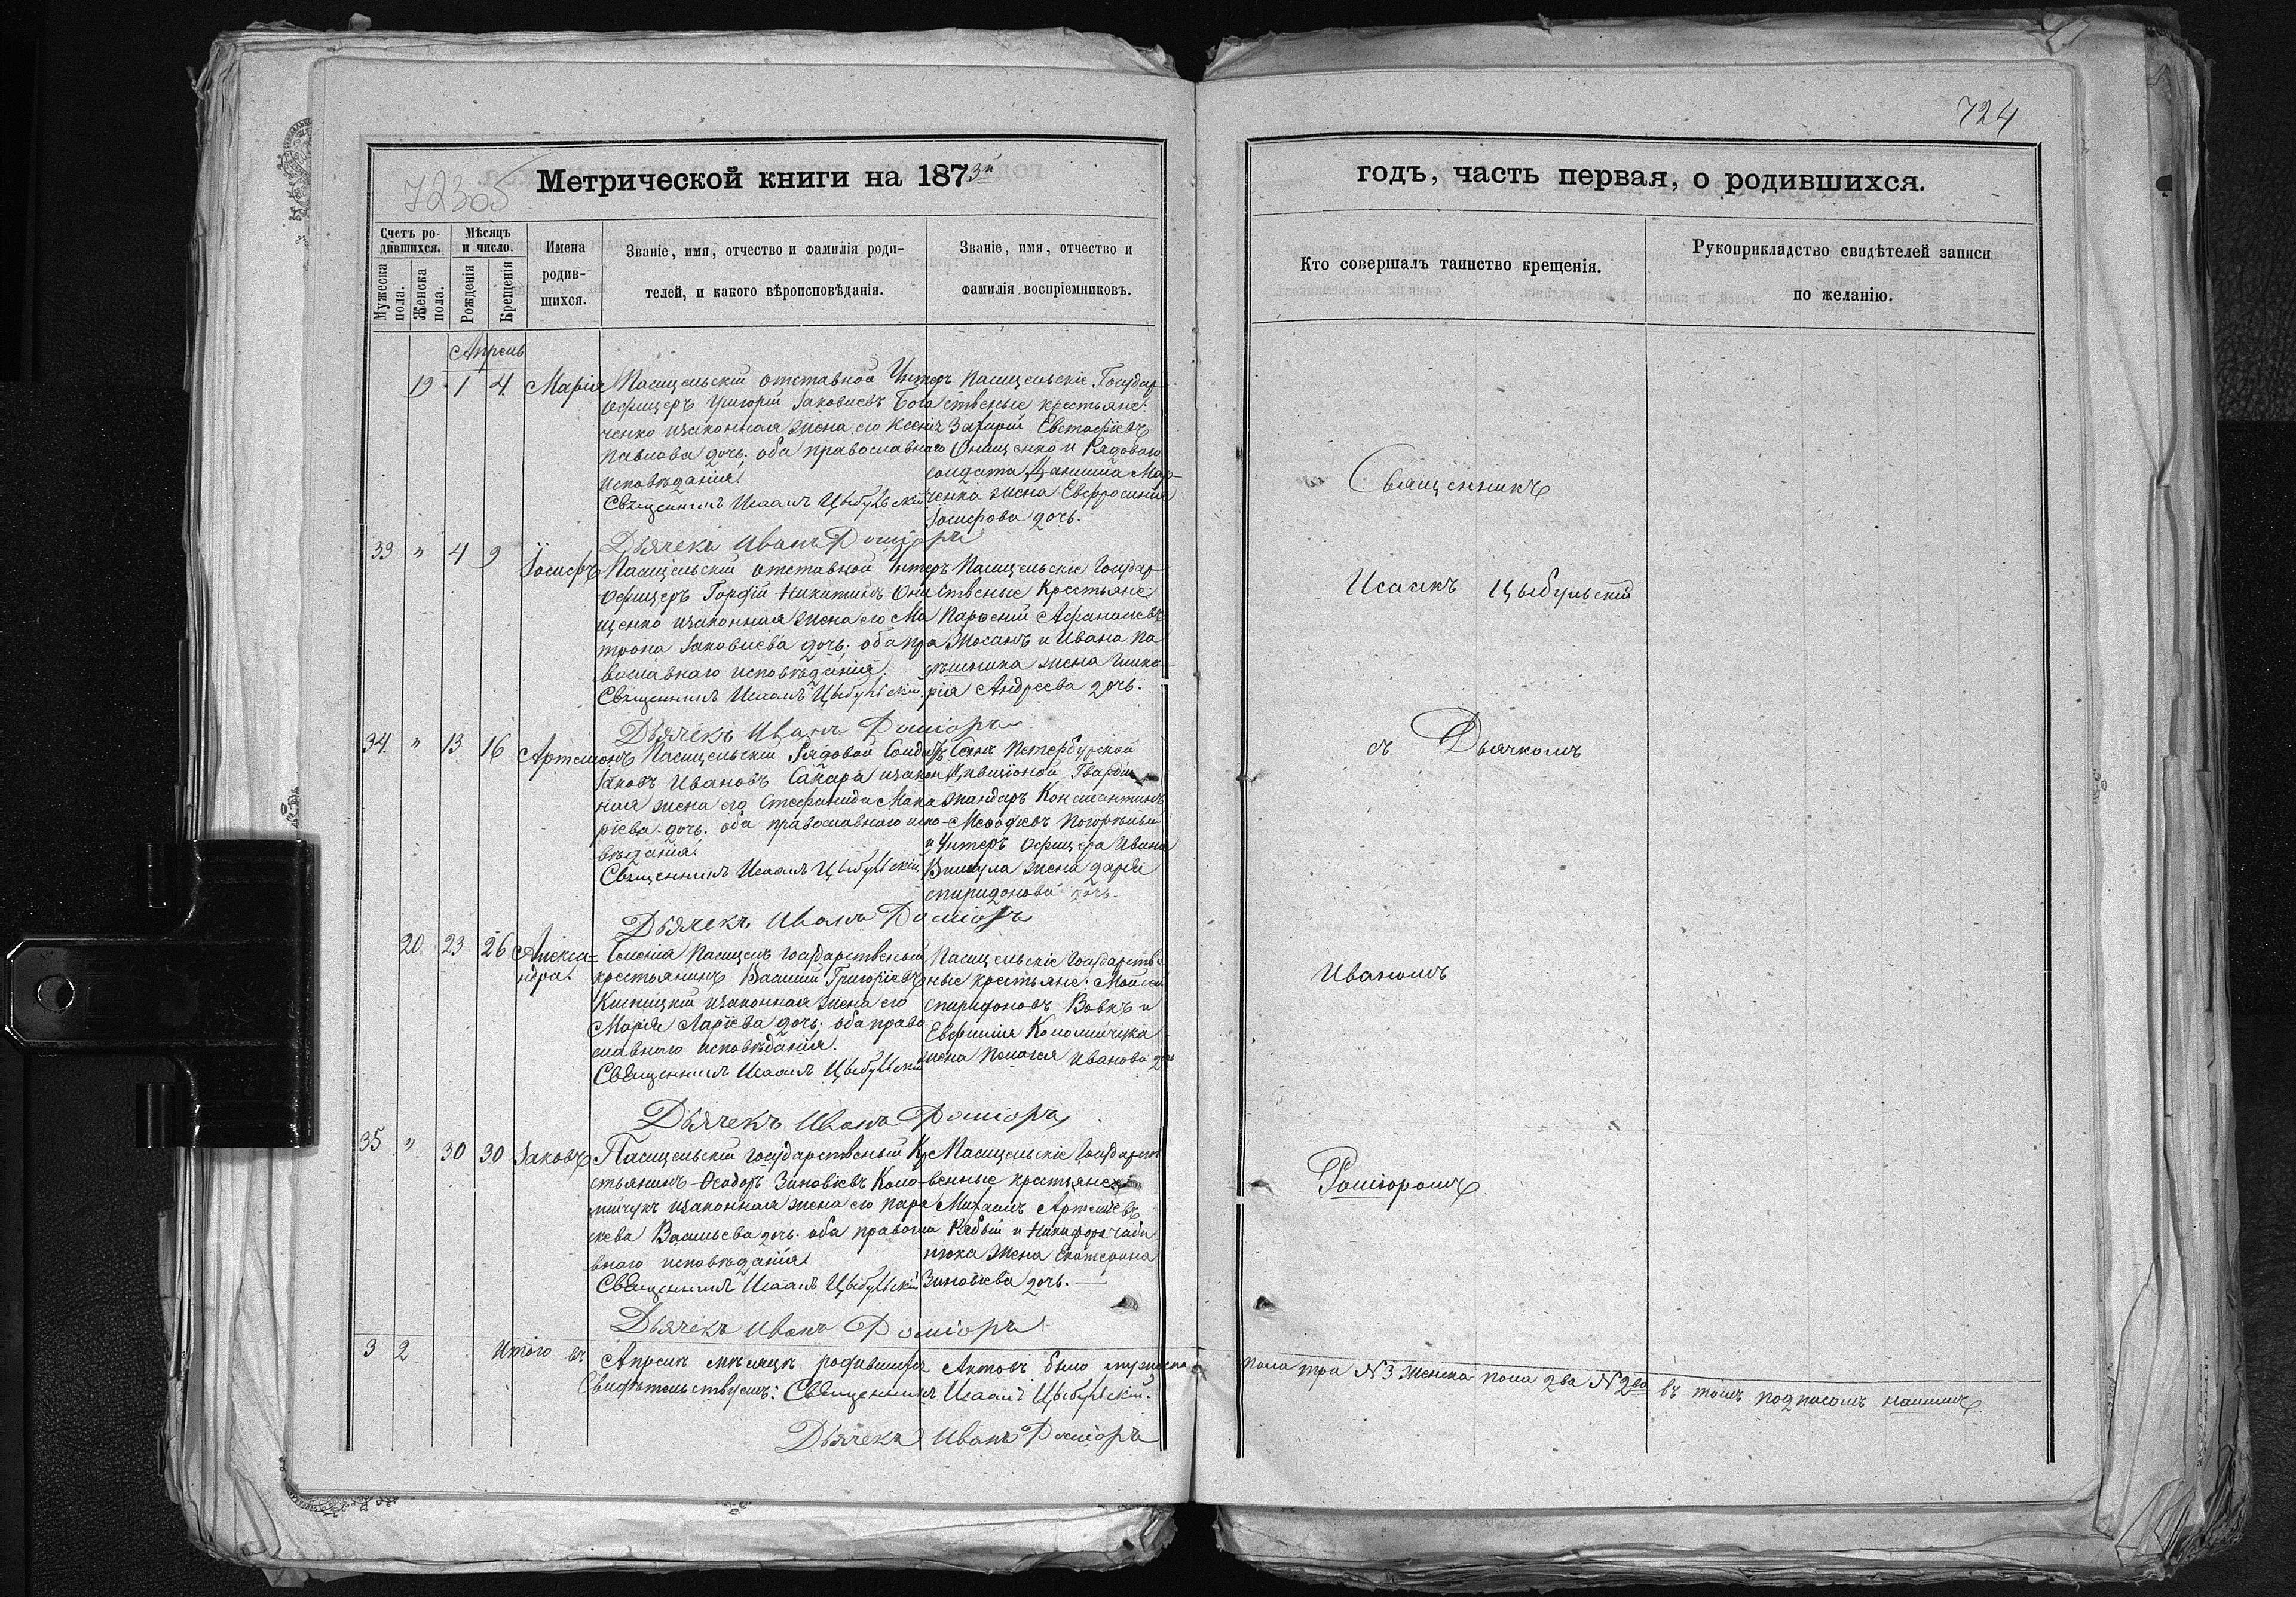 724
72305
Метрической книги на 1873й
годъ, часть первая, о родившихся.
Счетъ ро-
дившихся.
Мужеска
пола.
Женска
пола.
Мѣсяцъ
и число.
Рожденія
Крещенія
Имена
родив-
шихся.
Званіе, имя, отчество и фамилія роди-
телей, и какого вѣроисповѣданія.
Званіе, имя, отчество и
фамилія воспріемниковъ.
Кто совершалъ таинство крещенія.
Рукоприкладство свидѣтелей записи
по желанію.
Апрель
19 1 4 Марія
Пасицельскій отставной Унтеръ
Офицеръ Григорій Іаковлевъ Бога
ченко изаконная жена его Ксенія
Павлова дочь; оба православнаго
исповѣданія.
Священникъ Исаакъ Цыбульскій
Дьячекъ Иванъ Роміоръ
Пасицельскіе Государ
ственые крестьяне:
Захарій Евстафіевъ
Онищенко и Рядового
солдата Даниила Мар
ченка жена Евфросинія
Іосифова дочь.
33 " 4 9 Іосифъ
Пасицельскій отставной Унтеръ
Офицеръ Гордій Никитинъ Они
щенко изаконная жена его Ма
трона Іаковлева дочь; оба пра
вославнаго исповѣданія.
Священникъ Исаакъ Цыбульскій.
Дьячекъ Иванъ Роміоръ
Пасицельскіе Государ
ственые Крестьяне:
Парфеній Афанасіевъ
и Ивана Па
жена Глике
рія Андреева дочь.
34. " 13 16 Артемонъ
Пасицельскій Рядовой Солдатъ
Іаковъ Ивановъ Сакара изакон
ная жена его Стефанида Мака
ріева дочь. оба православнаго испо-
вѣданія.
Священникъ Исаакъ Цыбульскій.
Дьячекъ Иванъ Роміоръ
Петербурской
Дивизіоной Гвардіи
жандаръ Константинъ
Мефодіевъ Погорѣлый
и Унтеръ Офицера Ивана
жена Дарія
спиридонова дочь.
20 23 26 Алекса-
ндра
Селенія Пасицелъ государственый
крестьянинъ Василій Григоріевъ
изаконная жена его
Марія Ларіева дочь; оба право
славнаго исповѣданія.
Священникъ Исаакъ Цыбульскій
Дьячекъ Иванъ Роміоръ
Пасицельскіе Государстве
ные крестьяне: Мойсей
спиридоновъ Вовкъ и
Евфимія Коломійчука
жена Пелагея Иванова дочь
35 " 30 30 Іаковъ
Пасицельскій государственый Кре
стьянинъ Феодоръ Зиновіевъ Коло-
мійчукъ изаконная жена его Пара
скева Васильева дочь. оба правосла
внаго исповѣданія
Священникъ Исаакъ Цыбульскій
Дьячекъ Иванъ Роміоръ
Пасицельскіе Государст
венные крестьяне:
Михаилъ Артеміевъ
Рябый и Никифора Чаба
нюка жена Екатерина
Зиновіева дочь.
Священникъ
Исаакъ Цыбульскій
съ Дьячкомъ
Иваномъ
Роміоромъ
3 2 Итого въ Апрелѣ мѣсяцѣ родившихся Актовъ было мужеска пола три №3 женска пола два №2ва въ томъ подписомъ нашимъ
Свидѣтельствуемъ: Священникъ Исаакъ Цыбульскій.
Дьячекъ Иванъ Роміоръ